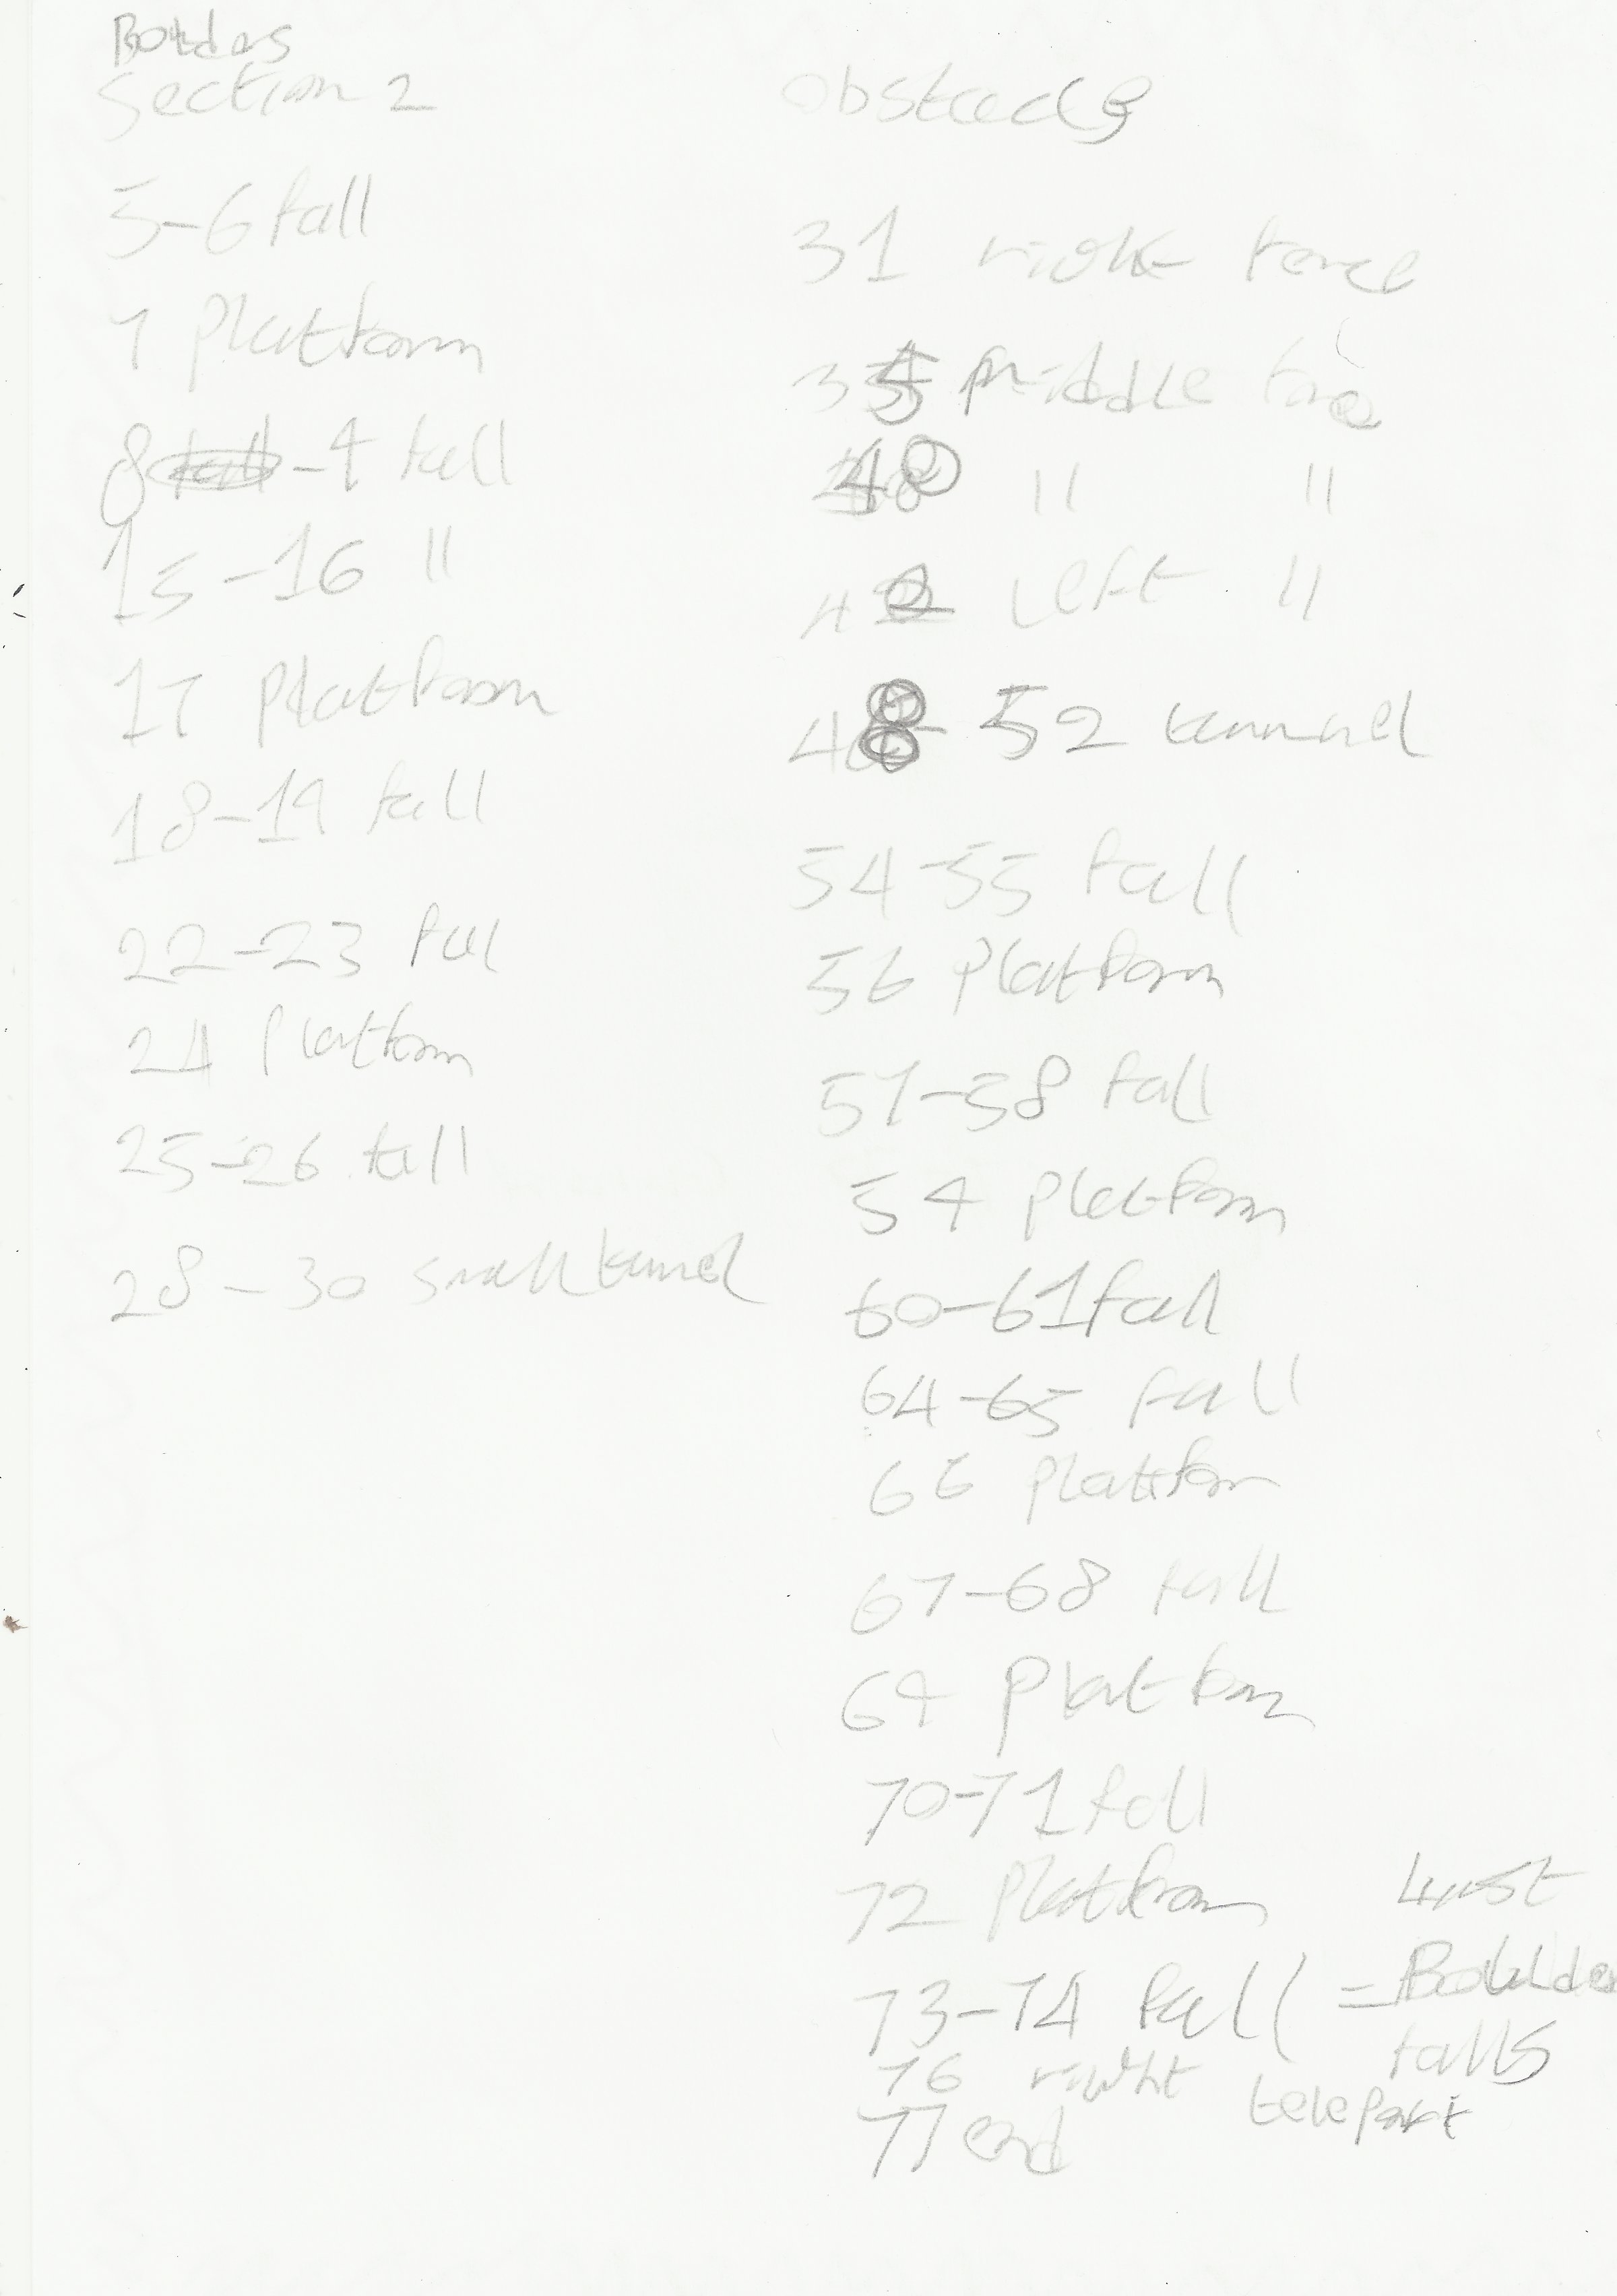 Boulders
Section 2
5-6 fall
7 platform
8-9 fall
15-16 "
17 platform
18-19 fall
22-23 fall
24 platform
25-26 fall
28-30 small tunnel
obstacles
31 right force
middle force
40 " "
42 left "
48-52 tunnel
54-55 fall
56 platform
57-58 fall
59 platform
60-61 fall
64-65 fall
66 platform
67-68 fall
69 platform
70-71 fall
72 platform
73-74 fall = Boulder
falls
76 right teleport
77 end